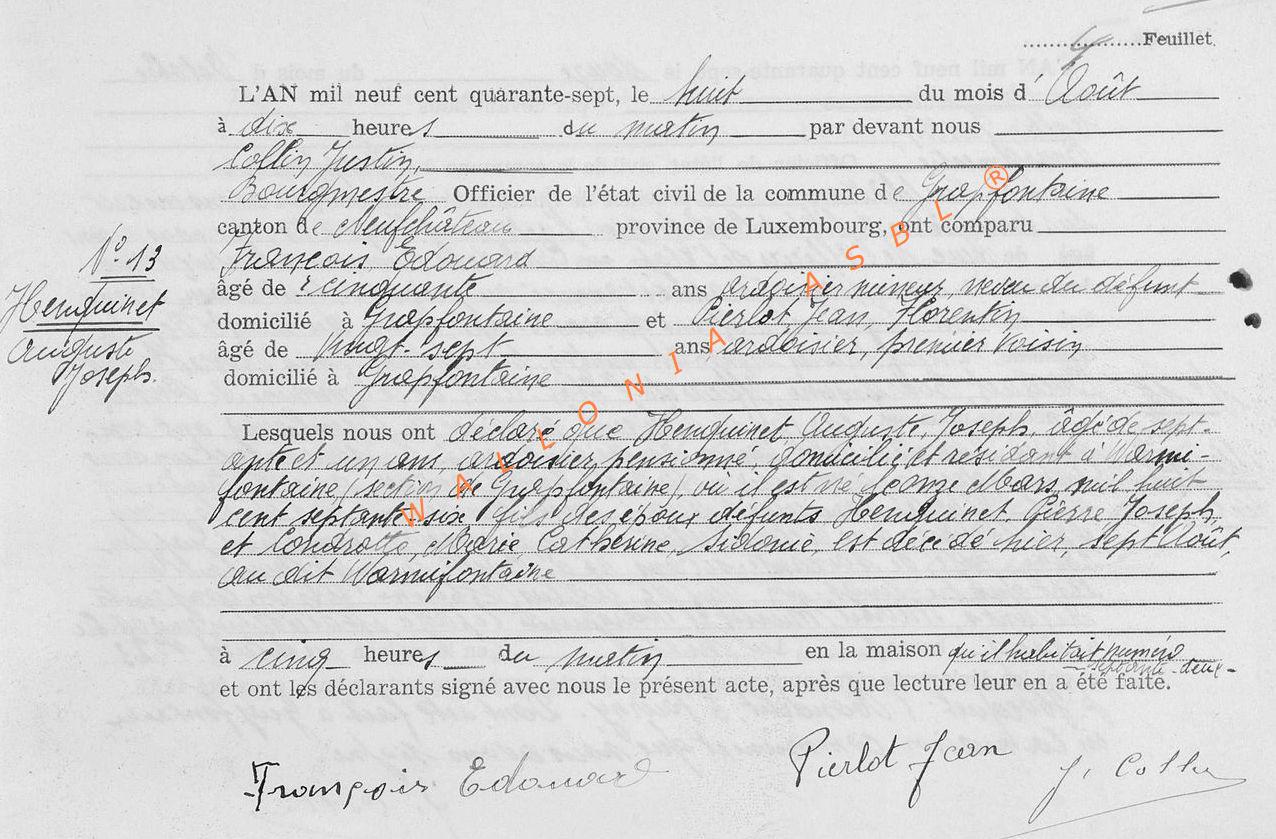 4 Feuillet.
L'AN mil neuf cent quarante-sept, le huit du mois d'Août
à dix heures du matin par devant nous
Collin Justin,
Bourgmestre Officier de l'état civil de la commune de Grapfontaine
canton de Neufchâteau province de Luxembourg, ont comparu
N° 13
Henquinet
Auguste
Joseph.
François Edouard
âgé de cinquante ans ardoisier mineur, neveu du défunt
domicilié à Grapfontaine et Pierlot Jean, Florentin
âgé de vingt-sept ans ardoisier, premier voisin
domicilié à Grapfontaine
Lesquels nous ont déclaré que Henquinet Auguste, Joseph, âgé de sept-
ante et un ans, ardoisier pensionné, domicilié et résidant à Warmi-
fontaine (section de Grapfontaine), où il est né le onze Mars mil huit
cent septante-six fils des époux défunts Henquinet, Pierre Joseph,
et Londrotte, Marie, Catherine, Sidonie, est décédé hier, sept Août,
au dit Warmifontaine
à cinq heures du matin en la maison qu'il habitait numéro
septante-deux-
et ont les déclarants signé avec nous le présent acte, après que lecture leur en a été faite.
François Edouard
Pierlot Jean
J. Collin
WALLONIA ASBL ®